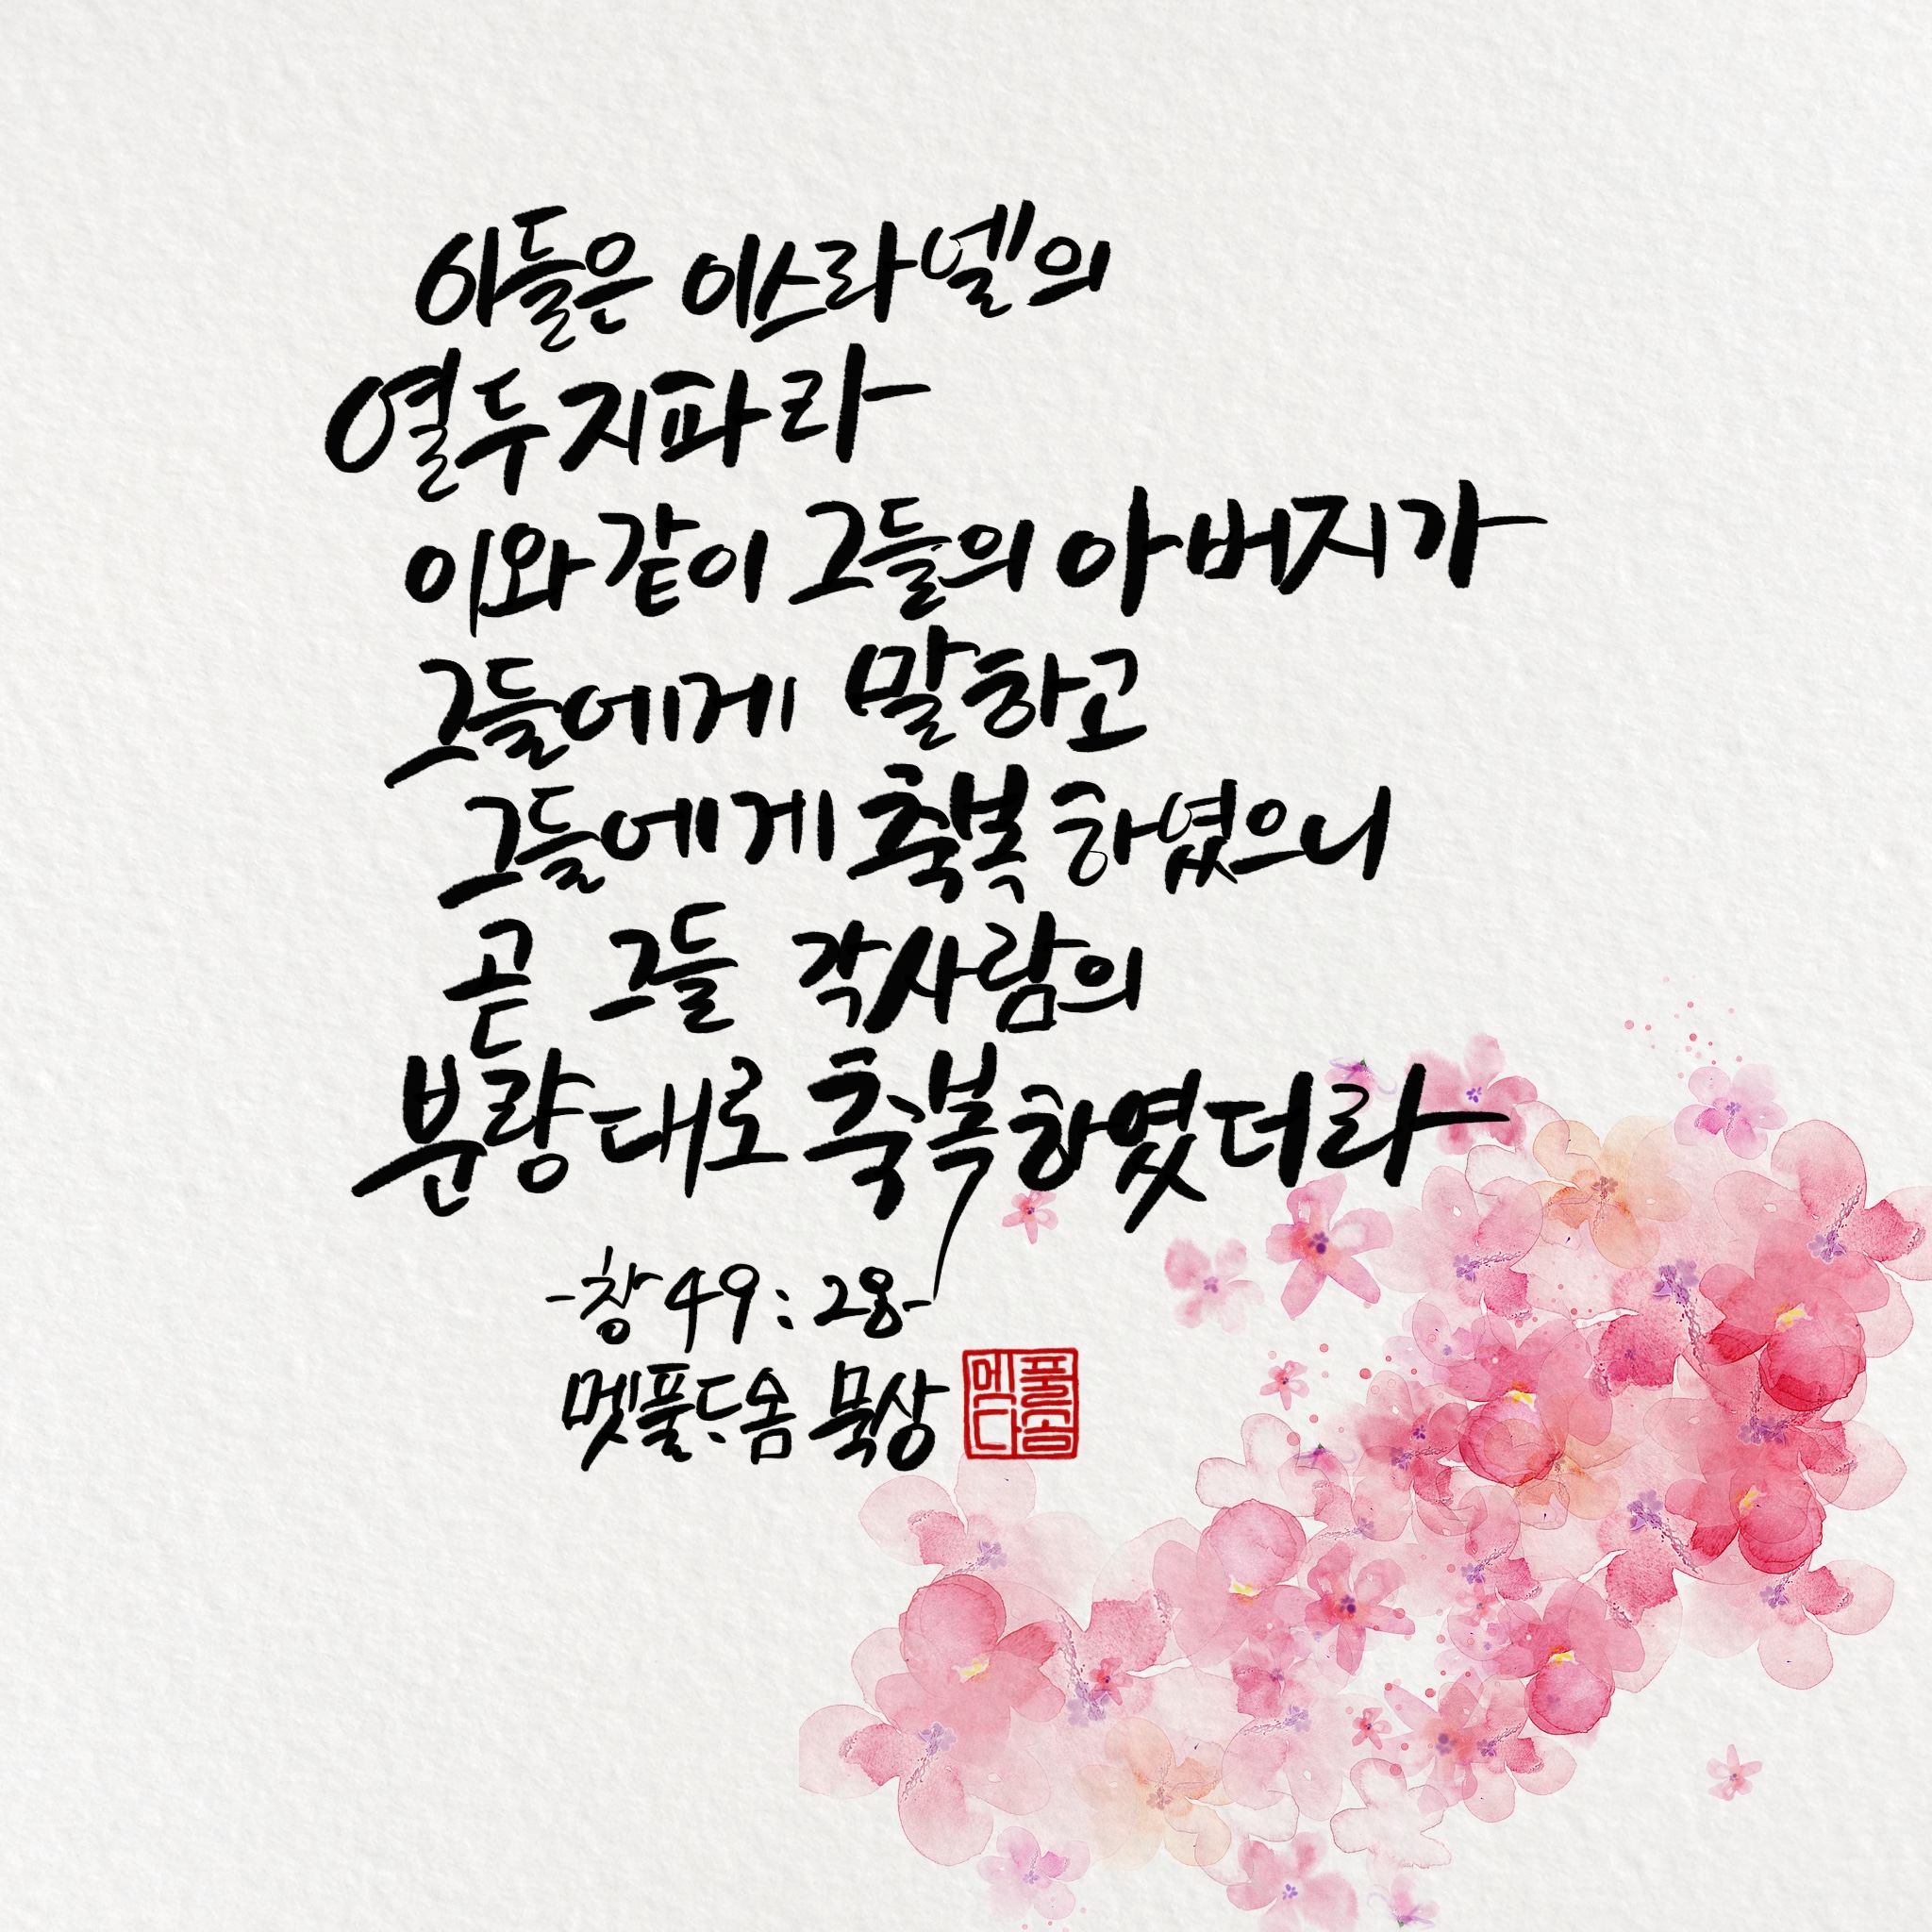 이들은 이스라엘의
열두 지파라
이와 같이 그들의 아버지가
그들에게 말하고
그들에게 축복하였으니
곧 그들 각 사람의
분량대로 축복하였더라
-창 49:28-
멧풀 묵상
멧풀